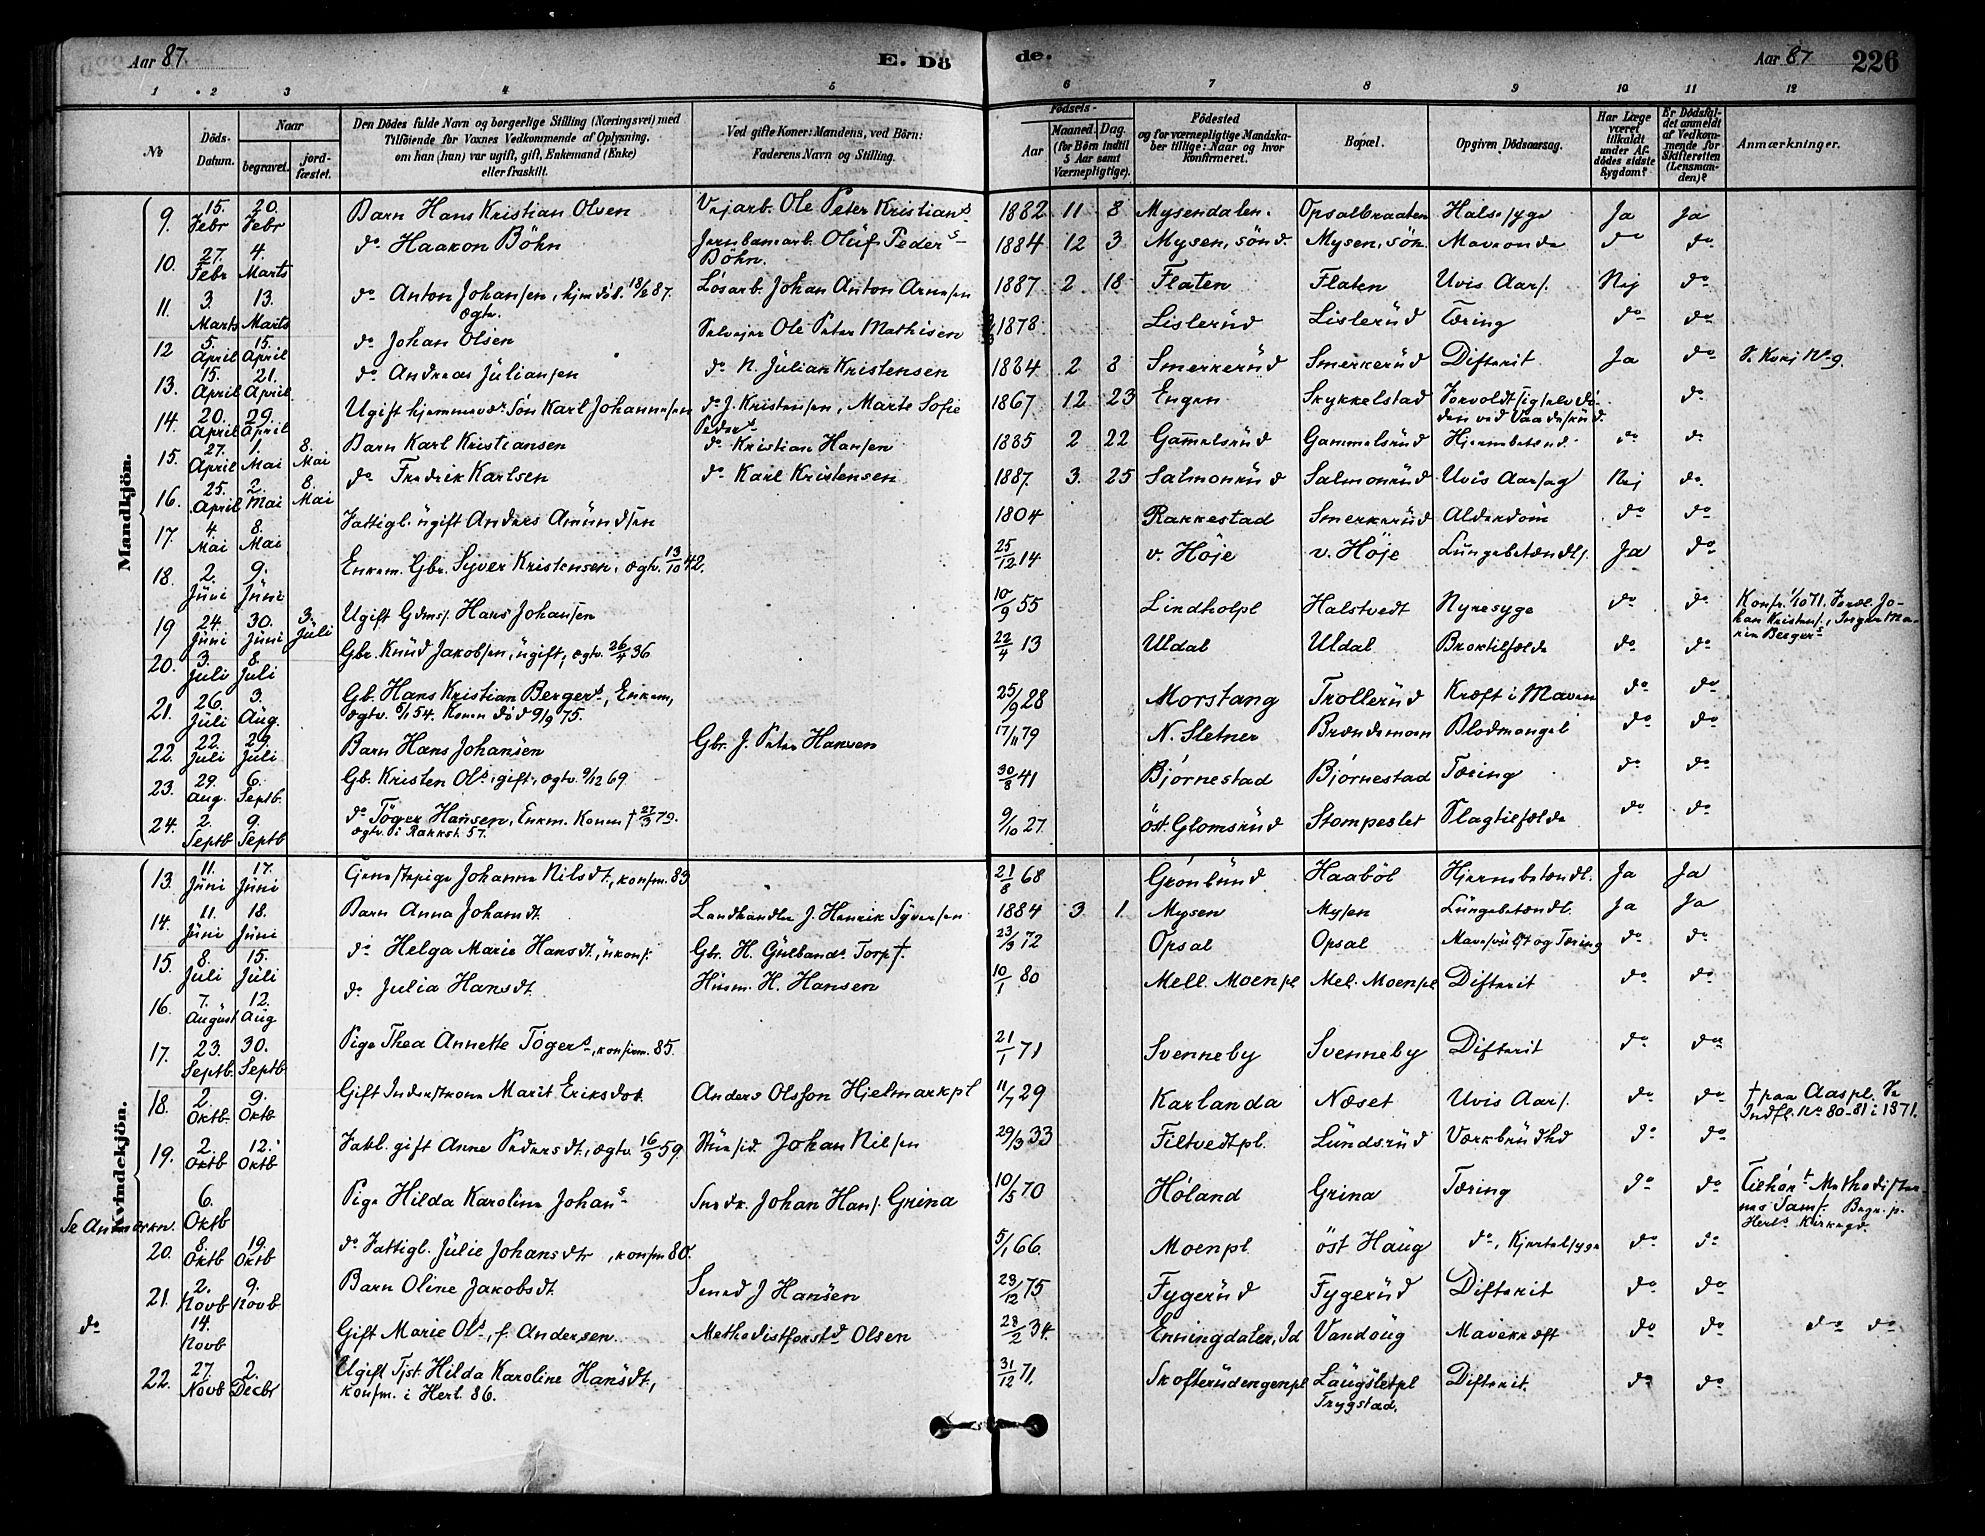 Aar 87 E. Dö de. Aar 87 226
1 2 3 4 5 6 7 8 9 10 11 12
No
Döds-Datum.
Naar
begravet.
jord-fæstet.
Den Dödes fulde Navn og borgerlige Stilling (Næringsvei) med
Tilföiende for Voxnes Vedkommende af Oplysning,
om han (hun) var ugift, gift, Enkemand (Enke)
eller fraskilt.
Ved gifte Koner: Mandens, ved Börn:
Faderens Navn og Stilling.
Födsels-
Aar
Maaned. Dag.
(for Börn indtil
5 Aar samt
Værnepligtige).
Födested
og for værnepligtige Mandska-
ber tillige: Naar og hvor
konfirmeret.
Bopæl.
Opgiven Dödsaarsag.
Har Læge
været
tilkaldt
under Af-
dödes sidste
Sygdom?
Er Dödsfal-
det anmeldt
af Vedkom-
mende for
Skifteretten
(Lensman-
den)?
Anmærkninger.
Mandkjön.
9. 15. Febr 20. Febr Barn Hans Kristian Olsen Vejarb. Ole Peter Kristians 1882 11 8 Mysendalen. Opsalbraaten Halssyge Ja Ja
10. 27. Febr 4. Marts do Haakon Böhn Jernbanearb. Oluf Peders Böhn. 1884 12 3 Mysen, sönd. Mysen, sön. Maveonde do do
11. 3 Marts 13. Marts do Anton Johansen, hjmdöb. 18/2 87. Lösarb. Johan Anton Arnesen 1887 2 18 Flaten Flaten Uvis Aars. Nej do
12 5. April 15. April do Johan Olsen Selvejer Ole Peter Mathisen 1878 Lislerud Lislerud Tæring do do
13. 15. April 21. April do Andreas Juliansen do N. Julian Kristensen 1884 2 8 Smerkerud Smerkerud Difterit Ja do
14. 20. April 29. April Ugift hjemmevær Sön Karl Johannesen do J. Kristensen, Marte Sofie Peders 1867 12 23 Engen Skykkelstad Forvoldt sig selv Döden ved Vaadeskud. do
15. 27. April 1. Mai 8. Mai Barn Karl Kristiansen do Kristian Hansen 1885 2 22 Gammelsrud Gammelsrud Hjernebetænd. do do
16. 25. April 2. Mai 8. Mai do Fredrik Karlsen do Karl Kristensen 1887. 3. 25 Salmonrud Salmonrud Uvis Aarsag Nej do
17. 4. Mai 8. Mai Fattigl. ugift Anders Amundsen 1804 Rakkestad Smerkerud Alderdom do do
18. 2. Juni 9. Juni Enkem. Gbr. Syver Kristensen, ægtv. 13/10 42. 25/12 14 v. Höje v. Höje Lungebetændls. Ja do
19 24. Juni 30. Juni 3. Juli Ugift Gdms. Hans Johansen 10/9 55 Lindholpl Halstvedt Nyresyge do do Konfr. 1/10 71. Foræl. Johan Kristens., Inger Marie Bergers
20. 3. Juli 8. Juli Gbr. Knud Jakobsen, ugift, ægtv. 26/4 36 22/4 13 Uldal Uldal Broktilfælde do do
21. 26. Juli 3. Aug. Gb. Hans Kristian Bergers, Enkem, ægtv. 6/1 54. Konen död 9/9 75. 25/9 28 Morstang Trollerud Kræft i Maven do do
22. 22. Juli 29. Juli Barn Hans Johansen Gbr. J. Peter Hansen 17/11 79 N. Sletner Brændemoen Blodmangel do do
23. 29. Aug. 6. Septb. Gb. Kristen Ols, gift, ægtv. 9/12 69 30/8 41 Björnestad Björnestad Tæring do do
24. 2. Septb 9. Septb do Töger Hansen, Enkm. Konen † 27/3 79. ægtv. i Rakkst. 57. 9/10 27 öst. Glomsrud Stompeslet Slagtilfælde do do
Kvindekjön.
13. 11. Juni 17. Juni Tjenestepige Johanne Nilsdt, konfm. 83 21/8 68 Grönlund Haaböl Hjernebetændl. Ja Ja
14. 11. Juni 18. Juni Barn Anna Johansdt. Landhandler J. Henrik Syversen 1884 3 1 Mysen Mysen Lungebetændl. Ja Ja
15. 8. Juli 15. Juli do Helga Marie Hansdt, ukonf. Gbr. H. Gulbands. Torp †. 23/3 72 Opsal Opsal Mavesvulst og Tæring do do
16. 7. August 12. Aug do Julia Hansdt. Husm. H. Hansen 10/1 80 Mell. Moenpl Mel. Moenpl Difterit do do
17. 23. Septb. 30. Septb Pige Thea Annette Tögers, konfirm. 85. 21/1 71 Svenneby Svenneby Difterit do do
18. 2. Oktb. 9. Oktb Gift Inderstkone Marit Eriksdt. Anders Olsson Hjelmarkpl 11/7 29 Karlanda Næset Uvis Aars. do do † paa Aaspl. Se Indfl. No 80-81 i 1871.
19. 2. Oktb 12. Oktb Fabl. gift Anne Pedersdt, ægtv. 16/9 59. Johan Nilsen 29/3 33 Filtvedtpl. Lundsrud Værkbrudhd do do
Se Anmærkn. 6. Oktb Pige Hilda Karoline Johans Snedk. Johan Hans. Grina 10/5 70 Höland Grina Tæring do do Tilhört Methodisternes Samf. Begr. p. Herl. Kirkegd.
20. 8. Oktb 19. Oktb do Fattigl. Julie Johansdtr, konfm 80. 5/1 66. Moenpl. öst Haug do, Kjertelsyge do do
21. 2. Novb 9. Novb Barn Oline Jakobsdt. Smed J Hansen 23/12 75 Fygerud Fygerud Difterit do do
do 14. Novb Gift Marie Ols, f. Andersen. Methodistforstd Olsen 28/2 34. Enningdalen, Id Vandöug Mavekræft do do do do
22. 27. Novb 2. Decbr Ugift Tjst. Hilda Karoline Hansdt, konfm. i Herl. 86. 31/12 71. Skofterudengenpl Laugsletpl Trygstad. Difterit. do do